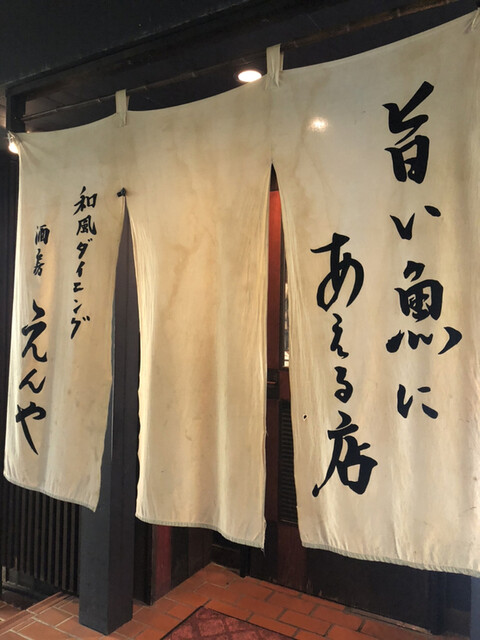 旨い魚に
あえる店
和風ダイニング
酒房
えんや